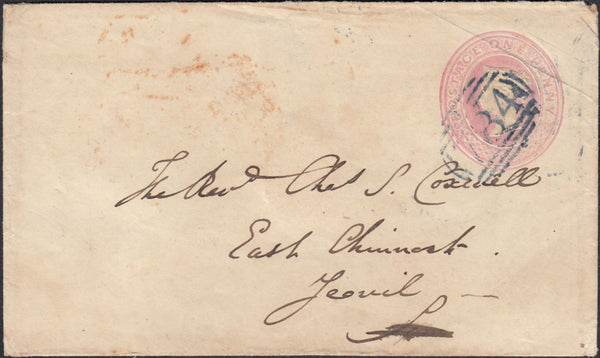 POSTAGE ONE PENNY
34
The Revd. Chas S. Coxwell
East Chinnock.
Yeovil —